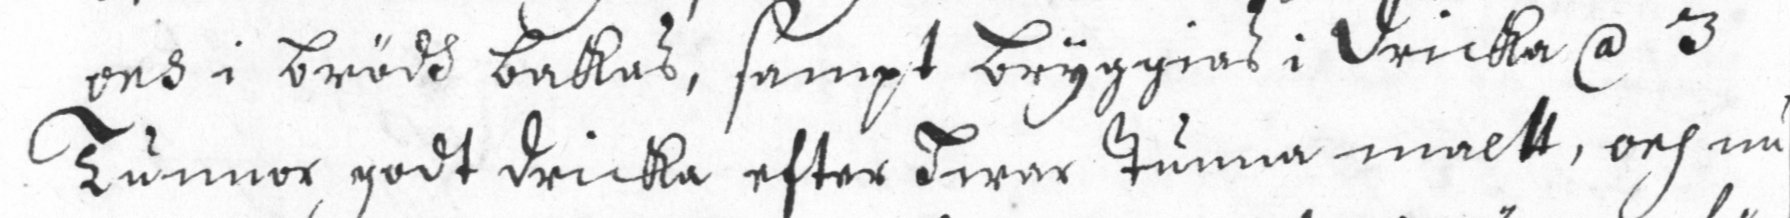 och i brödh bakas, sampt bryggias i dricka @ 3
Tunnor godt dricka efter hwar Tunna maltt, och nu